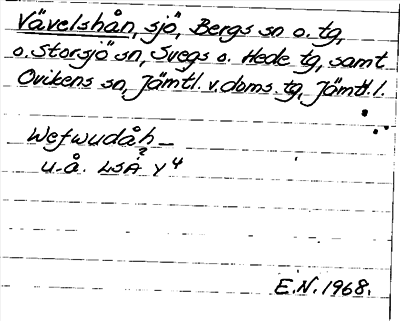 Vävelshån, sjö, Bergs sn o. tg,
o. Storsjö sn, Svegs o. Hede tg, samt
Ovikens sn, Jämtl. v. doms. tg, Jämtl. l.
Wefwudåh
u.å. LSA Y 4
E.N. 1968.